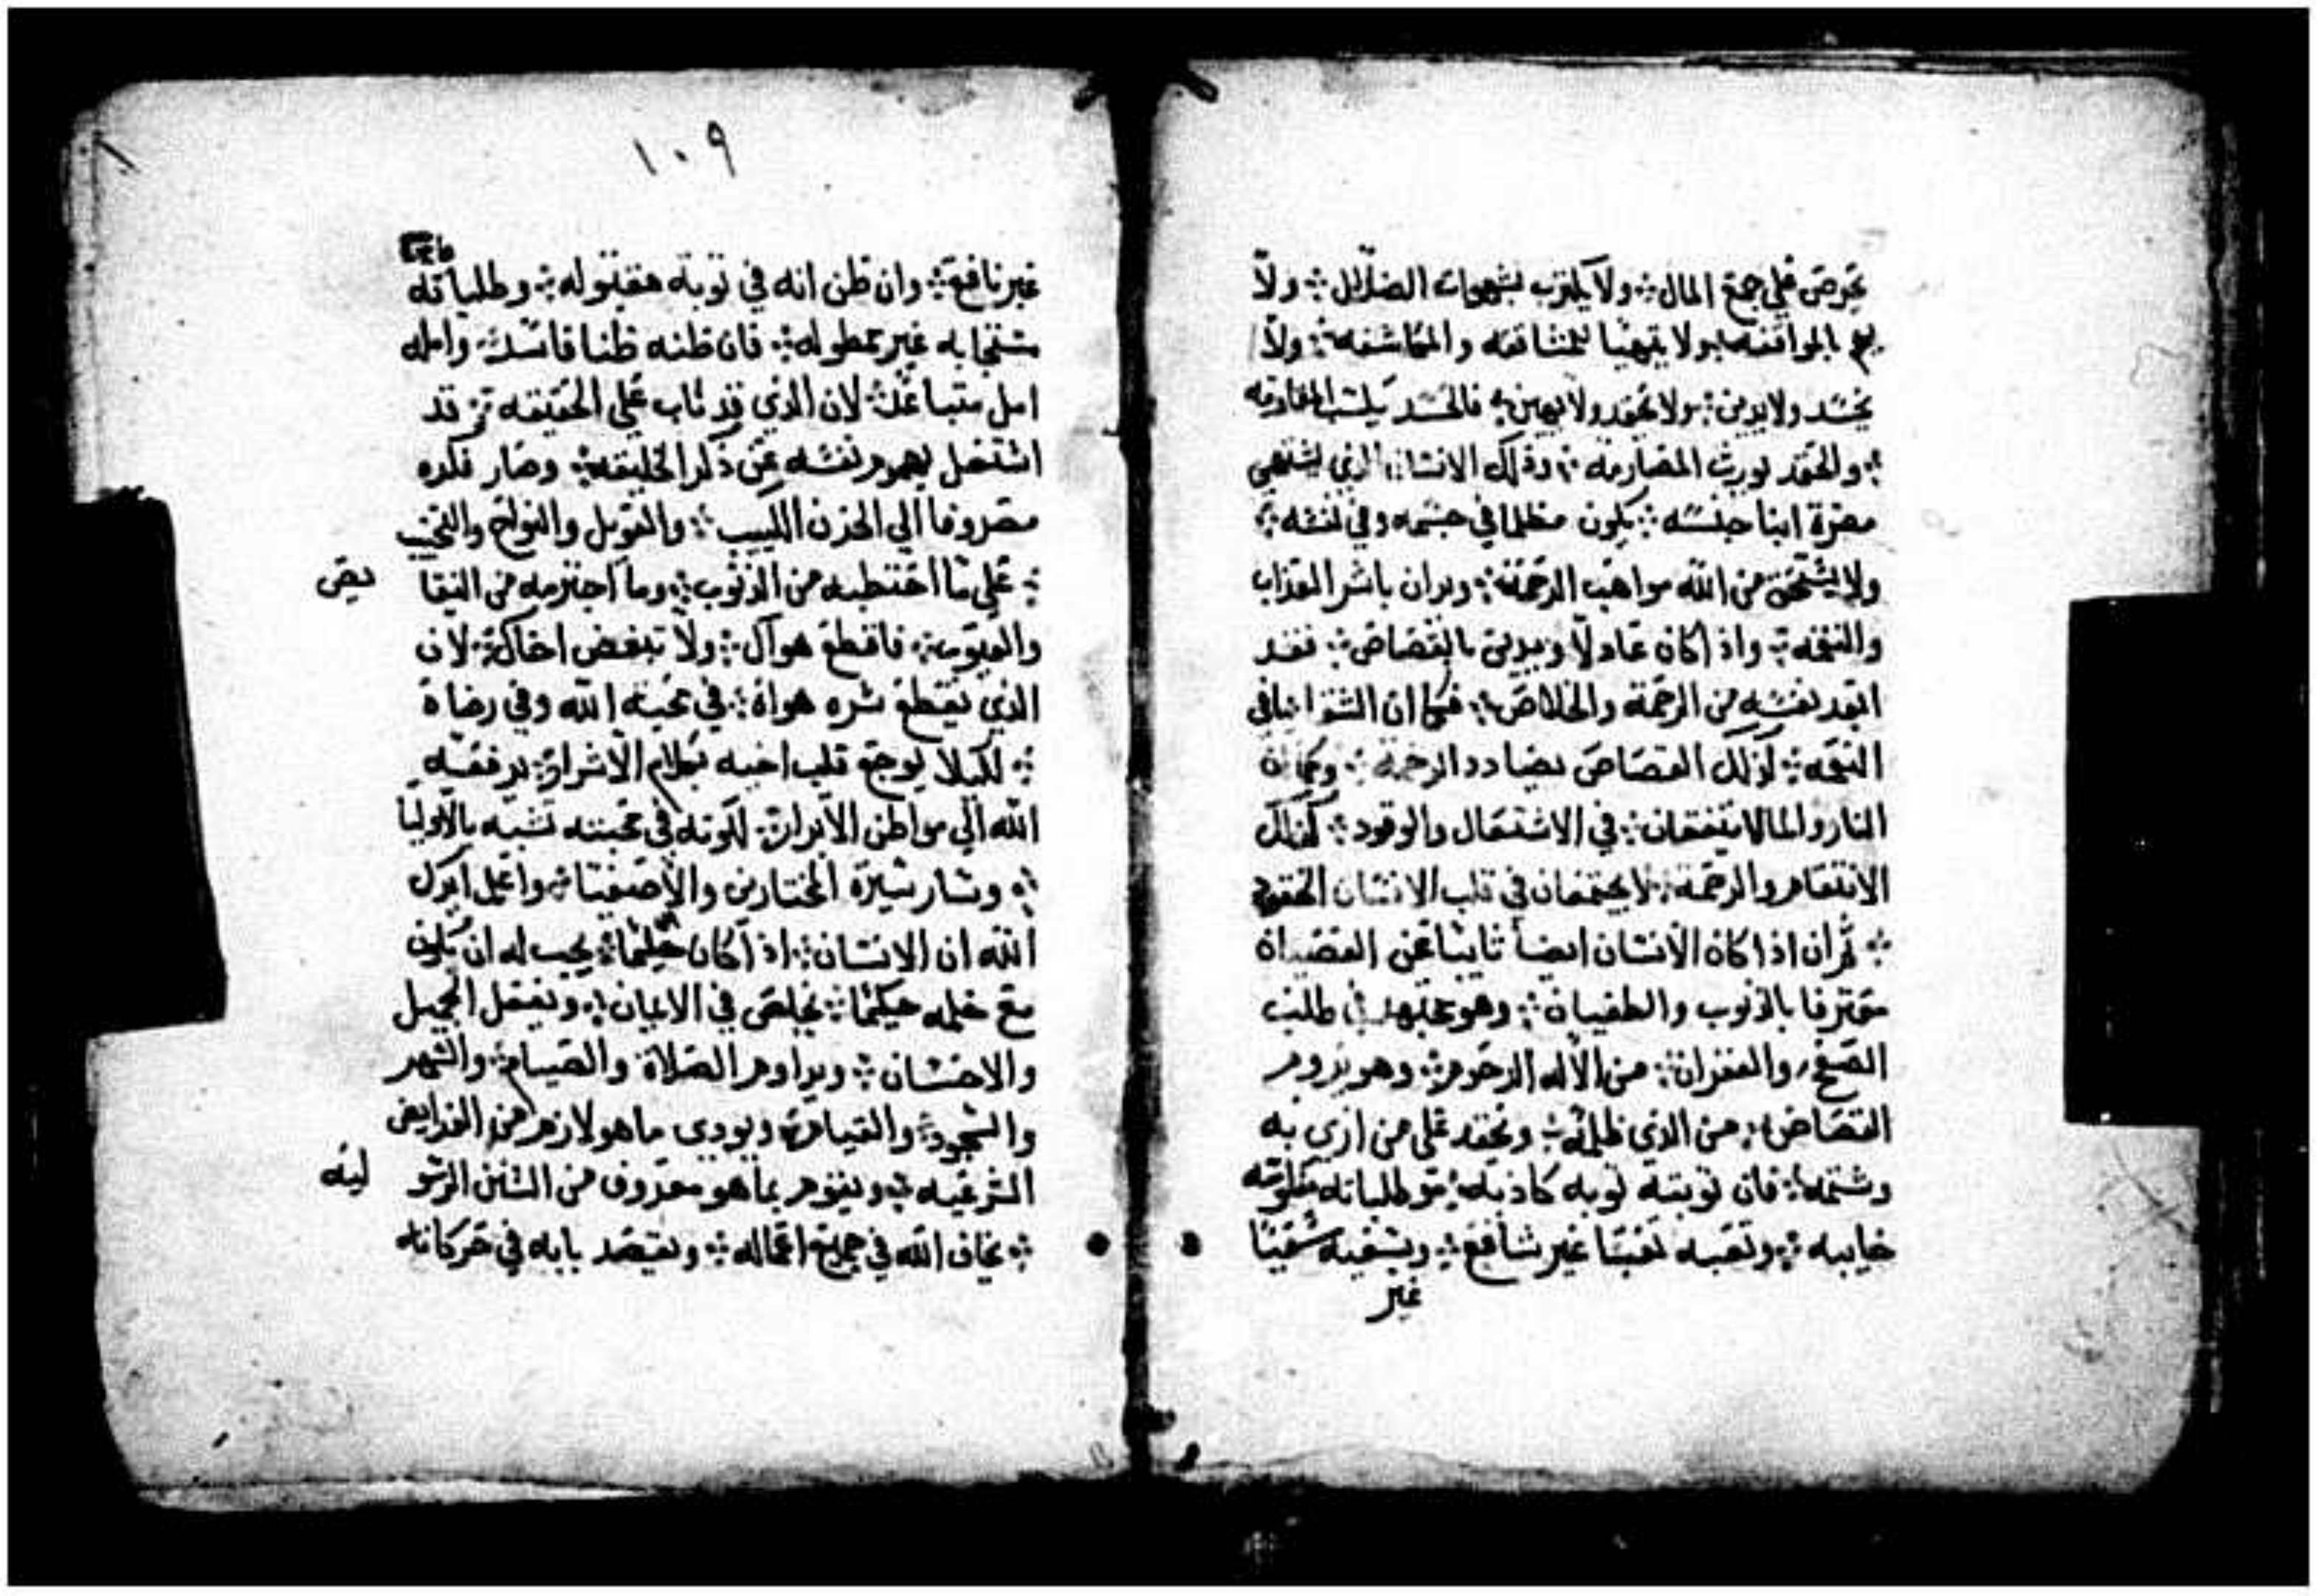 يحرص على جمع المال ولا يلترب بشهوات الضلال ولا
بالمواقفه ولا يتهيا للمشاققه والمكاشفه ولا
يحسد ولا يدين ولا يحقد ولا يهين فالحسد يلسب
والحقد يورث المصارمه وذلك الانسان الذي يشتهي
مضرة ابنا جنسه يكون مظلما في جسمه وفي نفسه
ولا يستحق من الله مواهب الرحمة وبران باشر العذاب
والنقمه واذا كان عادلا ويدين بالقصاص فقد
ابعد نفسه من الرحمة والخلاص فكما ان
النقمه كذلك القصاص يضادد الرحمة وكما ان
النار والما لا يتفقان في الاشتعال والوقود كذلك
الانتقام والرحمة لا يجتمعان في قلب الانسان الحقود
ثم ان اذا كان الانسان ايضا تايبا عن العصيان
معترفا بالذنوب والطغيان وهو مجتهد في طلب
الصفح والغفران من الاله الرحوم وهو يروم
القصاص من الذي ظلمه ويحقد على من ازري به
وشتمه فان توبته توبه كاذبه وطلباته
خايبه وتعبه تعبا غير نافع وسقيه سقيا
غير
١٠٩
غير نافع وان ظن انه في توبة مقبوله وطلباته
مستجابه غير مطوله فان ظنه ظنا فاسد وامله
امل متباعد لان الذي قد تاب على الحقيقه قد
اشتغل بهموم نفسه عن ذكر الخليقه وصار فكره
مصروفا الي الحزن الكييب والعويل والنواح والنحيب
على ما احتطبه من الذنوب وما اجترمه من النقا يص
والعيوب فاقطع هواك ولا تبغض اخاك لان
الذي يقطع شره هواه في محبة الله وفي رضاه
لكيلا يوجع قلب اخيه بكلام الاشرار يرفعه
الله الي مواطن الابرار لكونه في محبته تشبه بالاوليا
وسار سيرة المختارين والاصفيا واعلم ايدك
الله ان الانسان اذا كان حليما يجب له ان يكون
مع حلمه حكيما يخلص في الايمان ويفعل الجميل
والاحسان ويداوم الصلاة والصيام والسهر
والسجود والقيام ويودي ما هو لازم من الفرايض
الشرعيه ويقوم بما هو معروف من السنن الرسو ليه
يخاف الله في جميع اعماله ويقصد بابه في حركاته